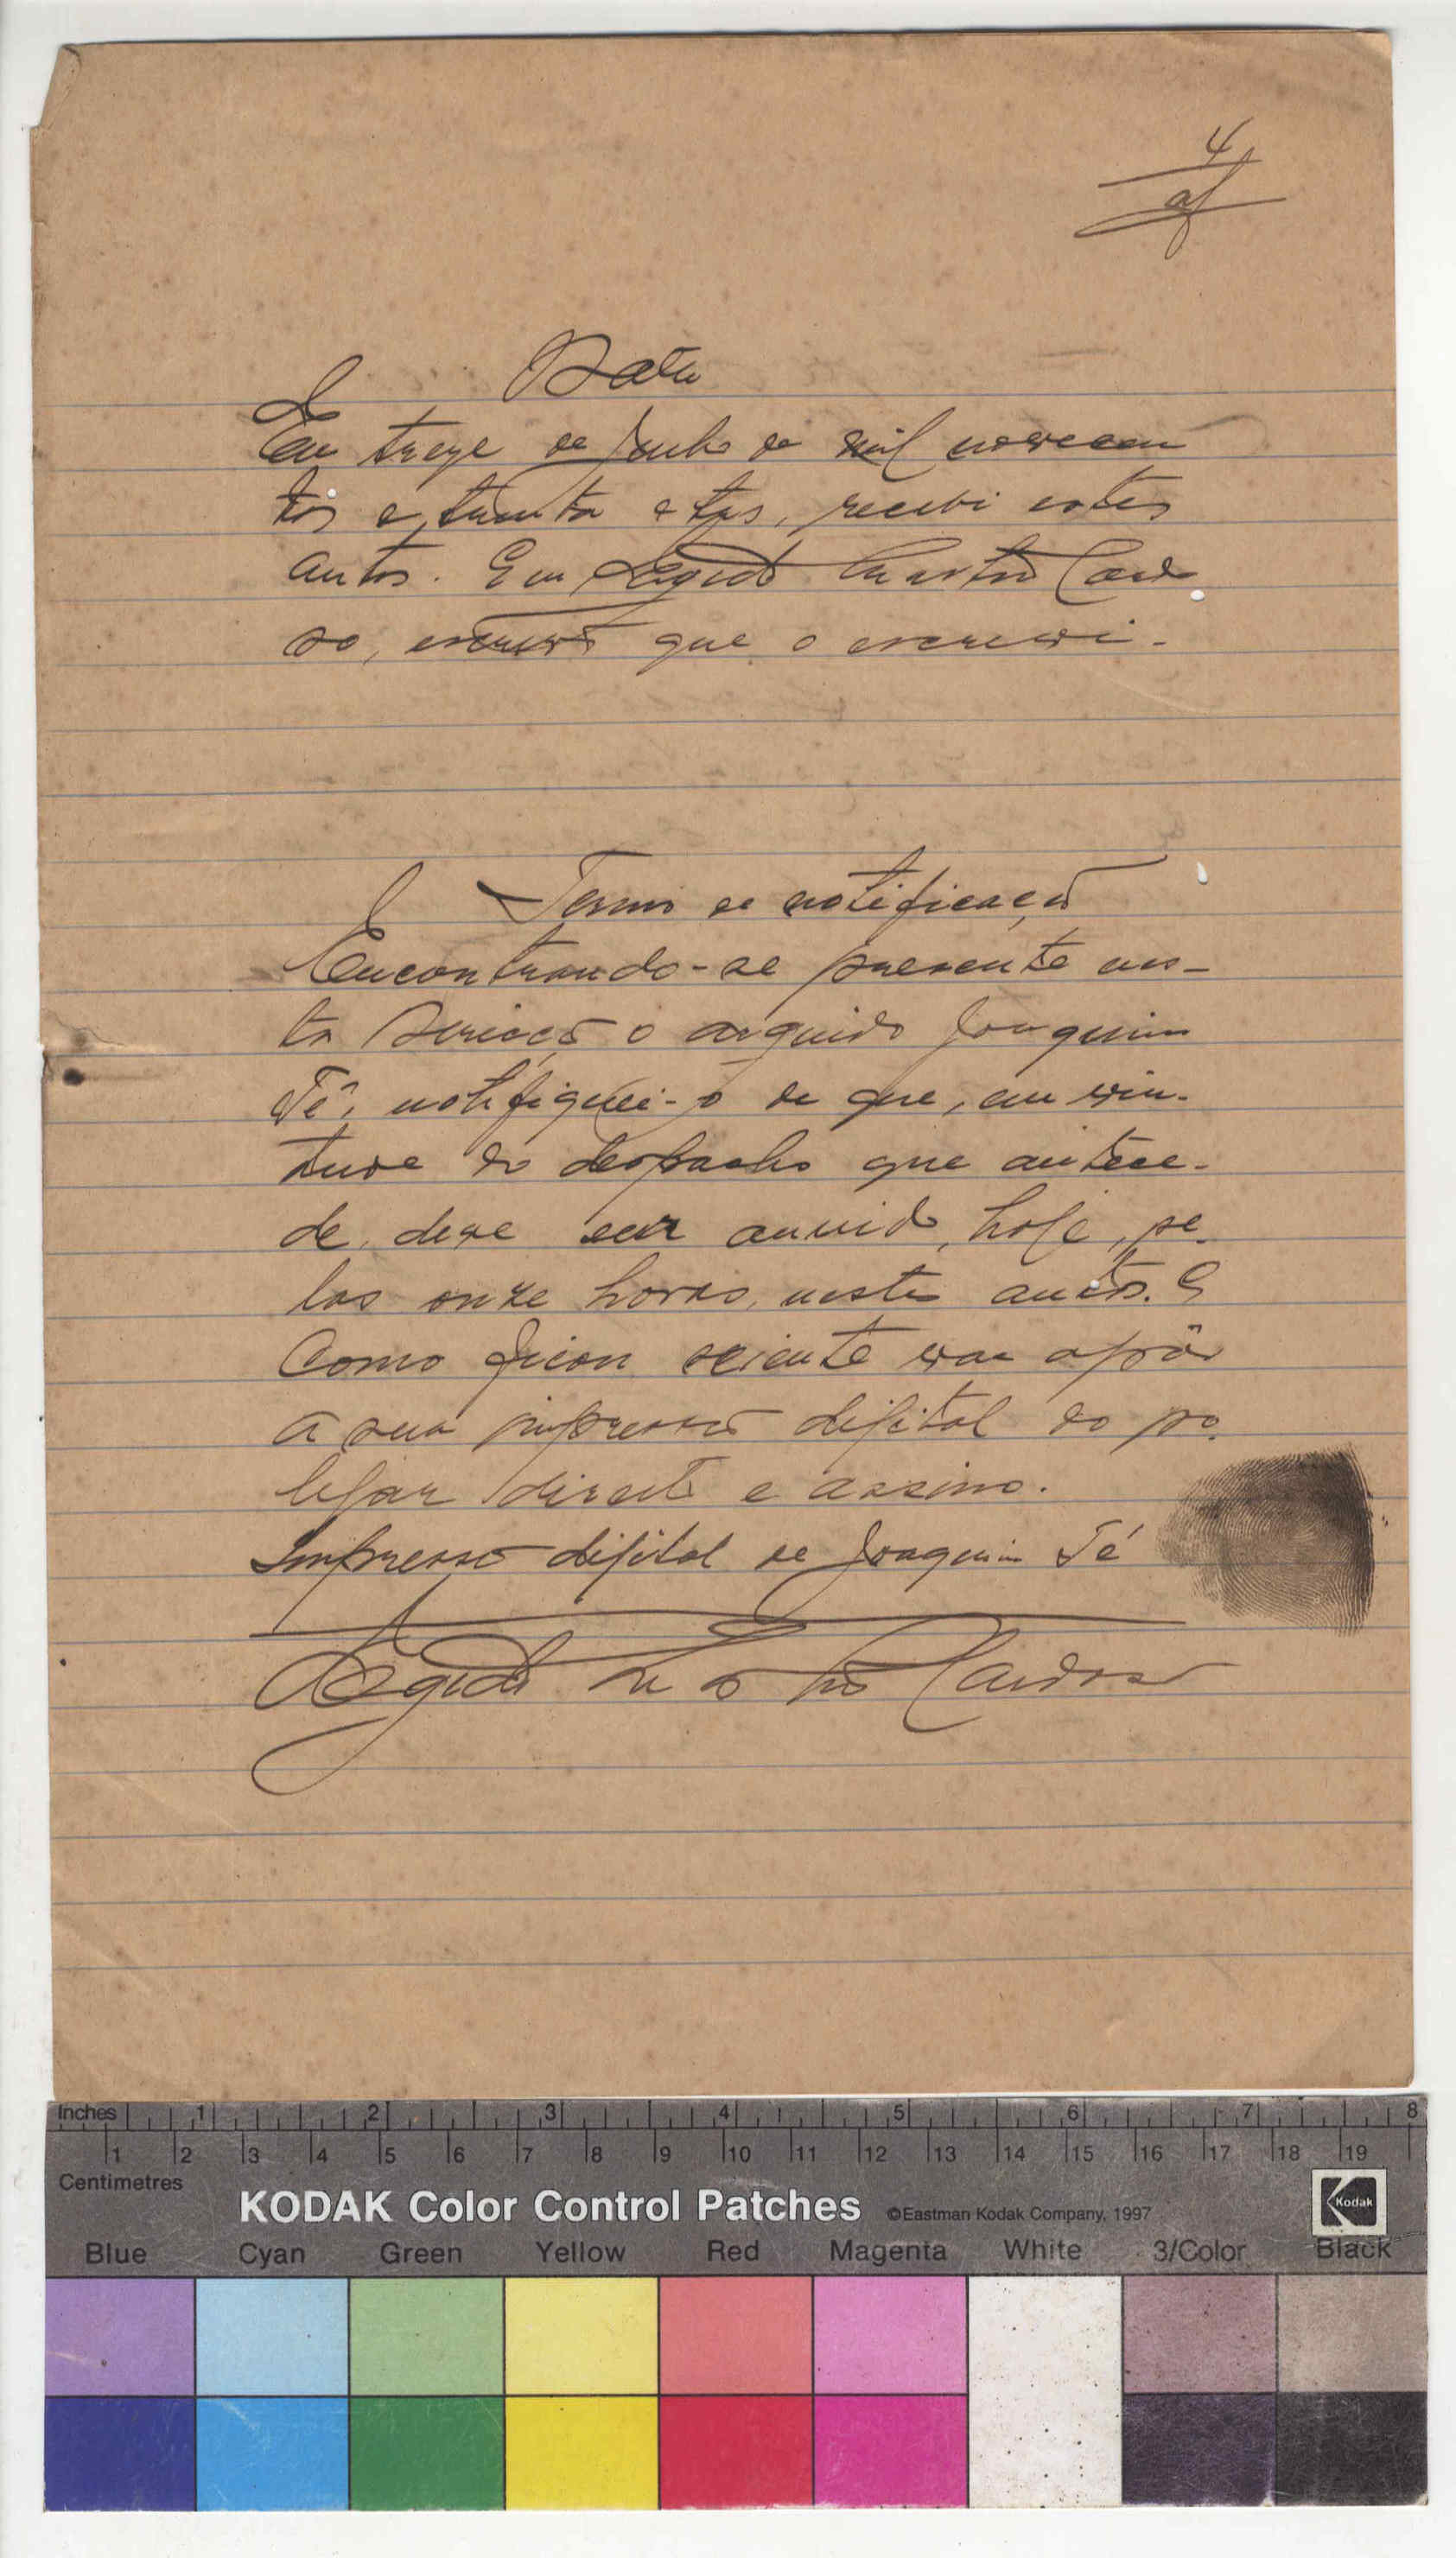 4
Data
Em treze de Junho de mil novecen
tos e trinta e tres, recebi estes
autos. Eu Egido Castro Cardo
so, escrivão que o escrevi.
Termo de notificação
Encontrando-se presente nes-
ta Secção o arguido Joaquim
Té, notifiquei-o de que, em vir-
tude do despacho que antece-
de, deve ser ouvido, hoje, pe-
las onze horas, nestes autos. E
como ficou sciente vae apôr
a sua impressão dijital do po-
legar direito e assino.
Impressão dijital de Joaquim Té
Egido Castro Cardoso
Inches 1 2 3 4 5 6 7 8
1 2 3 4 5 6 7 8 9 10 11 12 13 14 15 16 17 18 19
Centimetres
KODAK Color Control Patches ©Eastman Kodak Company, 1997 Kodak
Blue Cyan Green Yellow Red Magenta White 3/Color Black